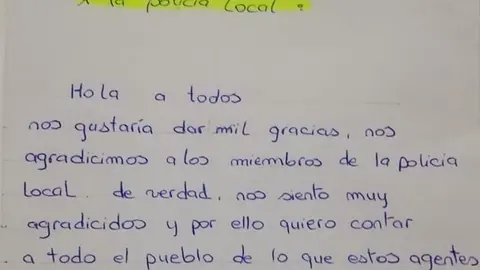 a la policia Local:
Hola a todos
nos gustaría dar mil gracias, nos
agradicimos a los miembros de la policia
Local. de verdad, nos siento muy
agradicidos y por ello quiero contar
a todo el pueblo de lo que estos agentes